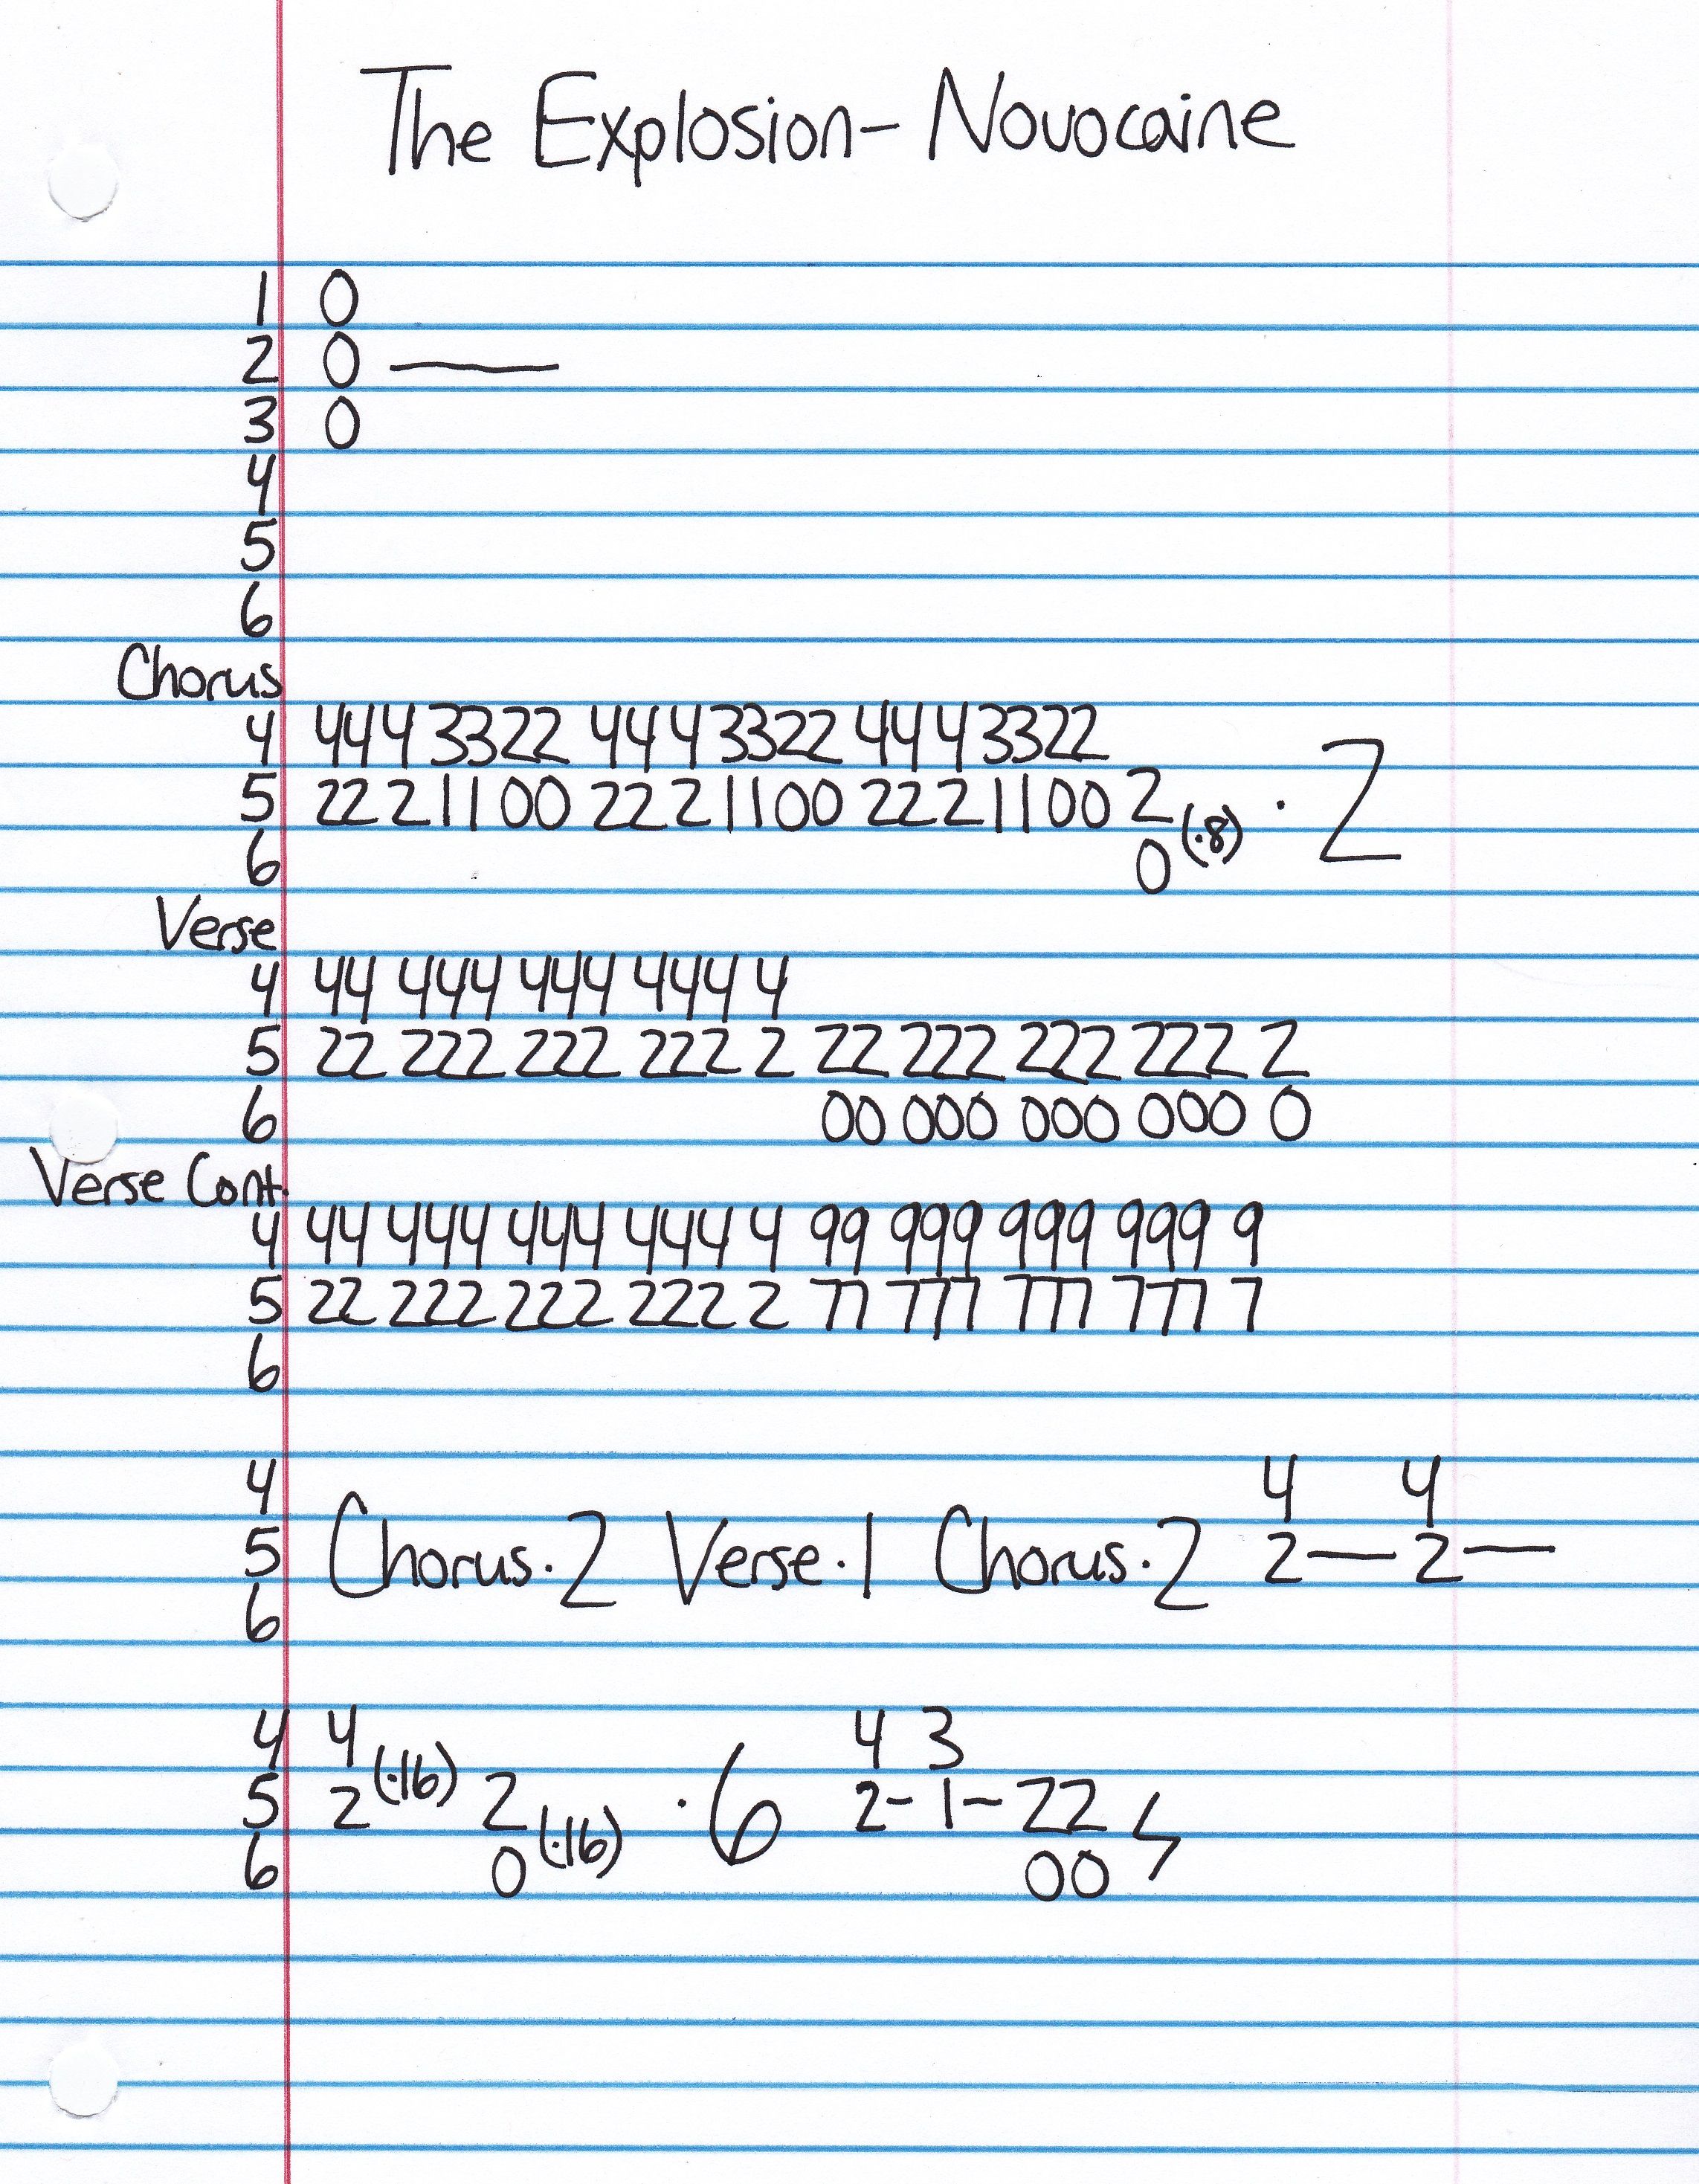 The Explosion- Novocaine
1 0
2 0 —
3 0
4
5
6
Chorus
4 444 3322 444 3322 444 3322
5 222 1100 222 1100 222 1100 2 (·8) · 2
6 0
Verse
4 44 444 444 444 4
5 22 222 222 222 2 22 222 222 222 2
6 00 000 000 000 0
Verse Cont.
4 44 444 444 444 4 99 999 999 999 9
5 22 222 222 222 2 77 777 777 777 7
6
4 4 4
5 Chorus·2 Verse·1 Chorus·2 2— 2—
6
4 4 4 3
5 2 (·16) 2 · 6 2- 1- 22
6 0 (·16) 00